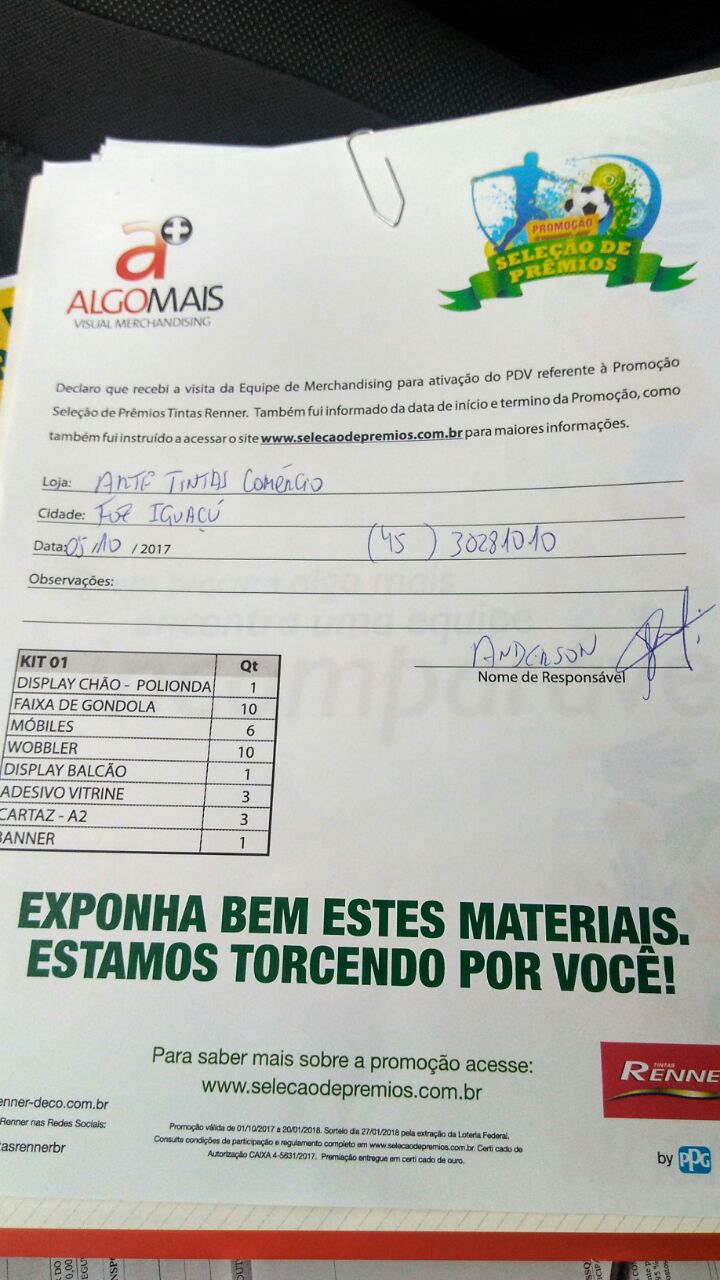 a+
ALGOMAIS
VISUAL MERCHANDISING
PROMOÇÃO
SELEÇÃO DE
PRÊMIOS
Declaro que recebi a visita da Equipe de Merchandising para ativação do PDV referente à Promoção
Seleção de Prêmios Tintas Renner. Também fui informado da data de início e termino da Promoção, como
também fui instruído a acessar o site www.selecaodepremios.com.br para maiores informações.
Loja: ARTE TINTAS COMÉRCIO
Cidade: FOZ IGUAÇÚ
Data: 05/10 / 2017 (45) 30281010
Observações:
ANDERSON
Nome de Responsável
KIT 01 Qt
DISPLAY CHÃO - POLIONDA 1
FAIXA DE GONDOLA 10
MÓBILES 6
WOBBLER 10
DISPLAY BALCÃO 1
ADESIVO VITRINE 3
CARTAZ - A2 3
BANNER 1
EXPONHA BEM ESTES MATERIAIS.
ESTAMOS TORCENDO POR VOCÊ!
Para saber mais sobre a promoção acesse:
www.selecaodepremios.com.br
TINTAS
RENNE
enner-deco.com.br
Renner nas Redes Sociais:
tasrennerbr
Promoção válida de 01/10/2017 a 20/01/2018. Sorteio dia 27/01/2018 pela extração da Loteria Federal.
Consulte condições de participação e regulamento completo em www.selecaodepremios.com.br. Certi cado de
Autorização CAIXA 4-5631/2017. Premiação entregue em certi cado de ouro.
by PPG